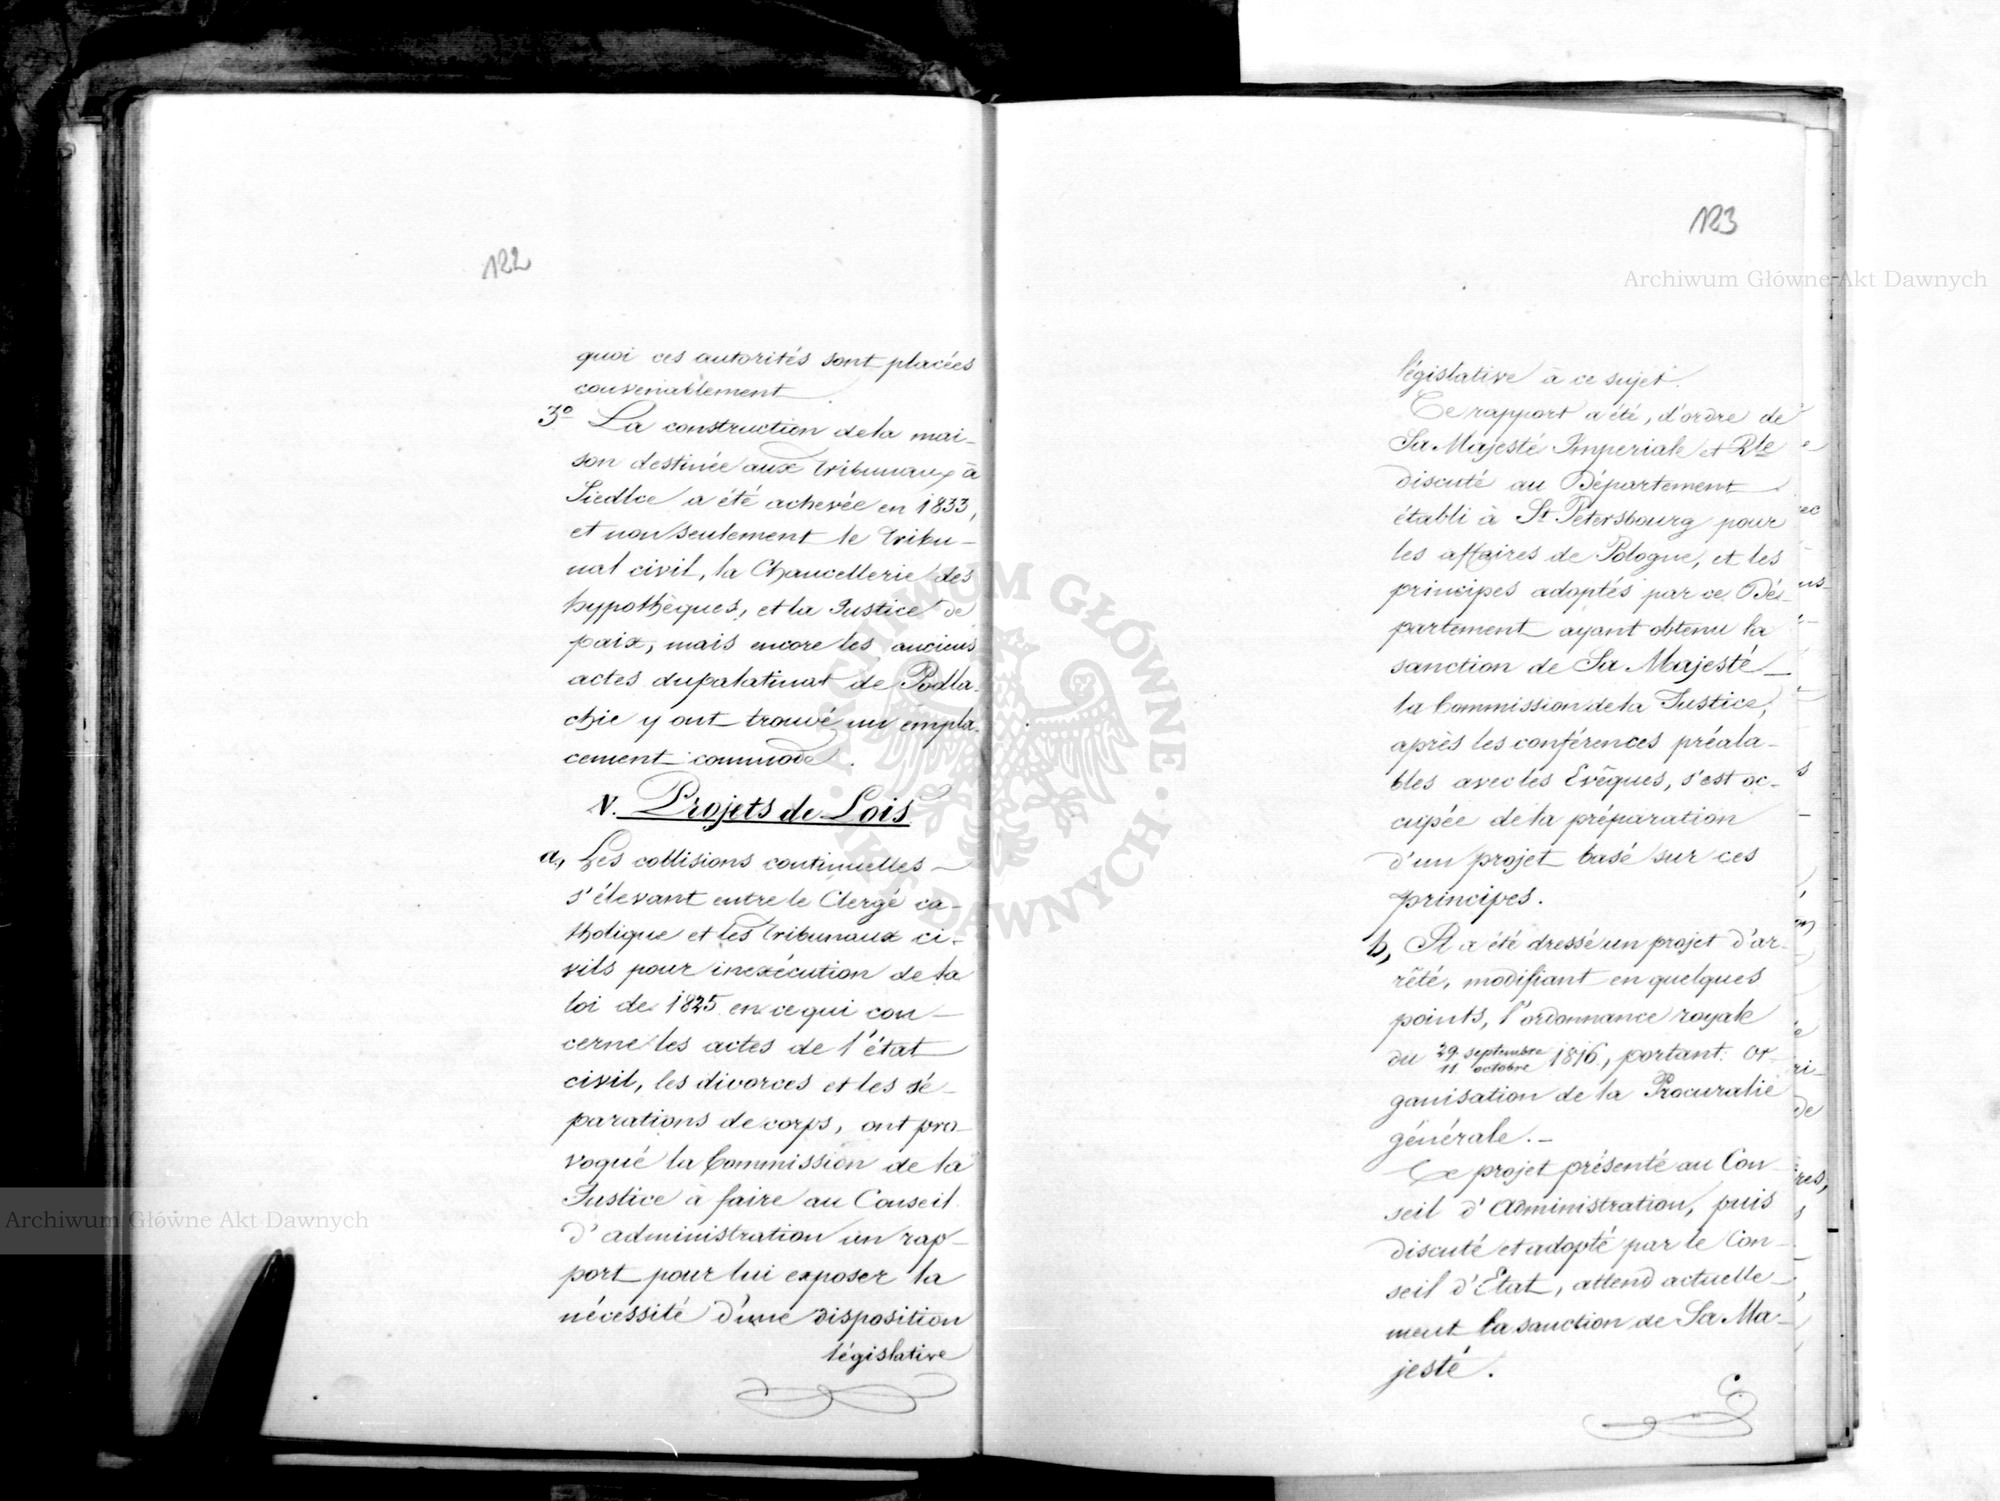 122
quoi ces autorités sont placées
convenablement.
3º La construction de la mai-
son destinée aux tribunaux à
Siedlce a été achevée en 1833,
et non seulement le Tribu-
nal civil, la Chancellerie des
hypothèques, et la Justice de
paix, mais encore les anciens
actes du palatinat de Podla-
chie y ont trouvé un empla-
cement commode.
V. Projets de Lois
a, Les collisions continuelles
s'élevant entre le Clergé ca-
tholique et les tribunaux ci-
vils pour inexécution de la
loi de 1825 en ce qui con-
cerne les actes de l'état
civil, les divorces et les sé-
parations de corps, ont pro-
voqué la Commission de la
Justice à faire au Conseil
d'administration un rap-
port pour lui exposer la
nécessité d'une disposition
législative
123
législative à ce sujet.
Ce rapport a été, d'ordre de
Sa Majesté Imperiale et Rle
discuté au Département
établi à St Pétersbourg pour
les affaires de Pologne, et les
principes adoptés par ce Dé-
partement ayant obtenu la
sanction de Sa Majesté
la Commission de la Justice,
après les conférences préala-
bles avec les Evêques, s'est oc-
cupée de la préparation
d'un projet basé sur ces
principes.
b, Il a été dressé un projet d'ar-
rêté, modifiant en quelques
points, l'ordonnance royale
du 29 septembre / 11 octobre 1816, portant: Or-
ganisation de la Procuratie
générale. -
Ce projet présenté au Con-
seil d'Administration, puis
discuté et adopté par le Con-
seil d'Etat, attend actuelle-
ment la sanction de Sa Ma-
jesté.
Archiwum Główne Akt Dawnych
Archiwum Główne Akt Dawnych
ARCHIWUM GŁÓWNE · AKT DAWNYCH ·